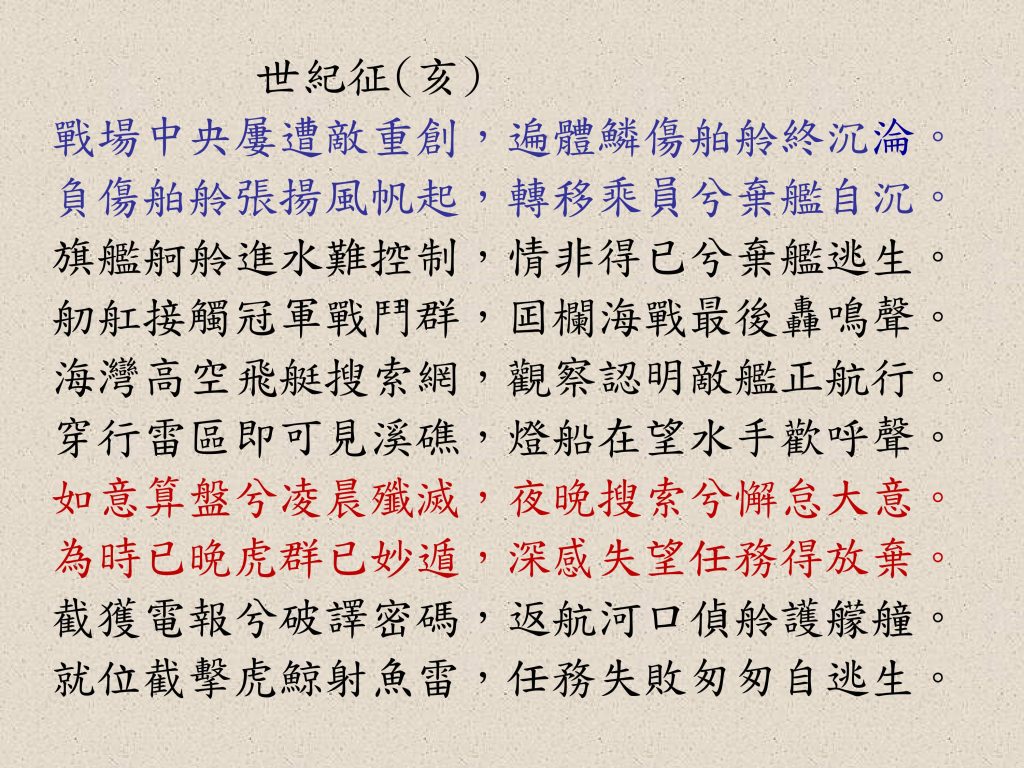 世紀征(亥)
戰場中央屢遭敵重創，遍體鱗傷舶舲終沉淪。
負傷舶舲張揚風帆起，轉移乘員兮棄艦自沉。
旗艦舸舲進水難控制，情非得已兮棄艦逃生。
舠舡接觸冠軍戰鬥群，囸欄海戰最後轟鳴聲。
海灣高空飛艇搜索網，觀察認明敵艦正航行。
穿行雷區即可見溪礁，燈船在望水手歡呼聲。
如意算盤兮凌晨殲滅，夜晚搜索兮懈怠大意。
為時已晚虎群已妙遁，深感失望任務得放棄。
截獲電報兮破譯密碼，返航河口偵舲護艨艟。
就位截擊虎鯨射魚雷，任務失敗匆匆自逃生。